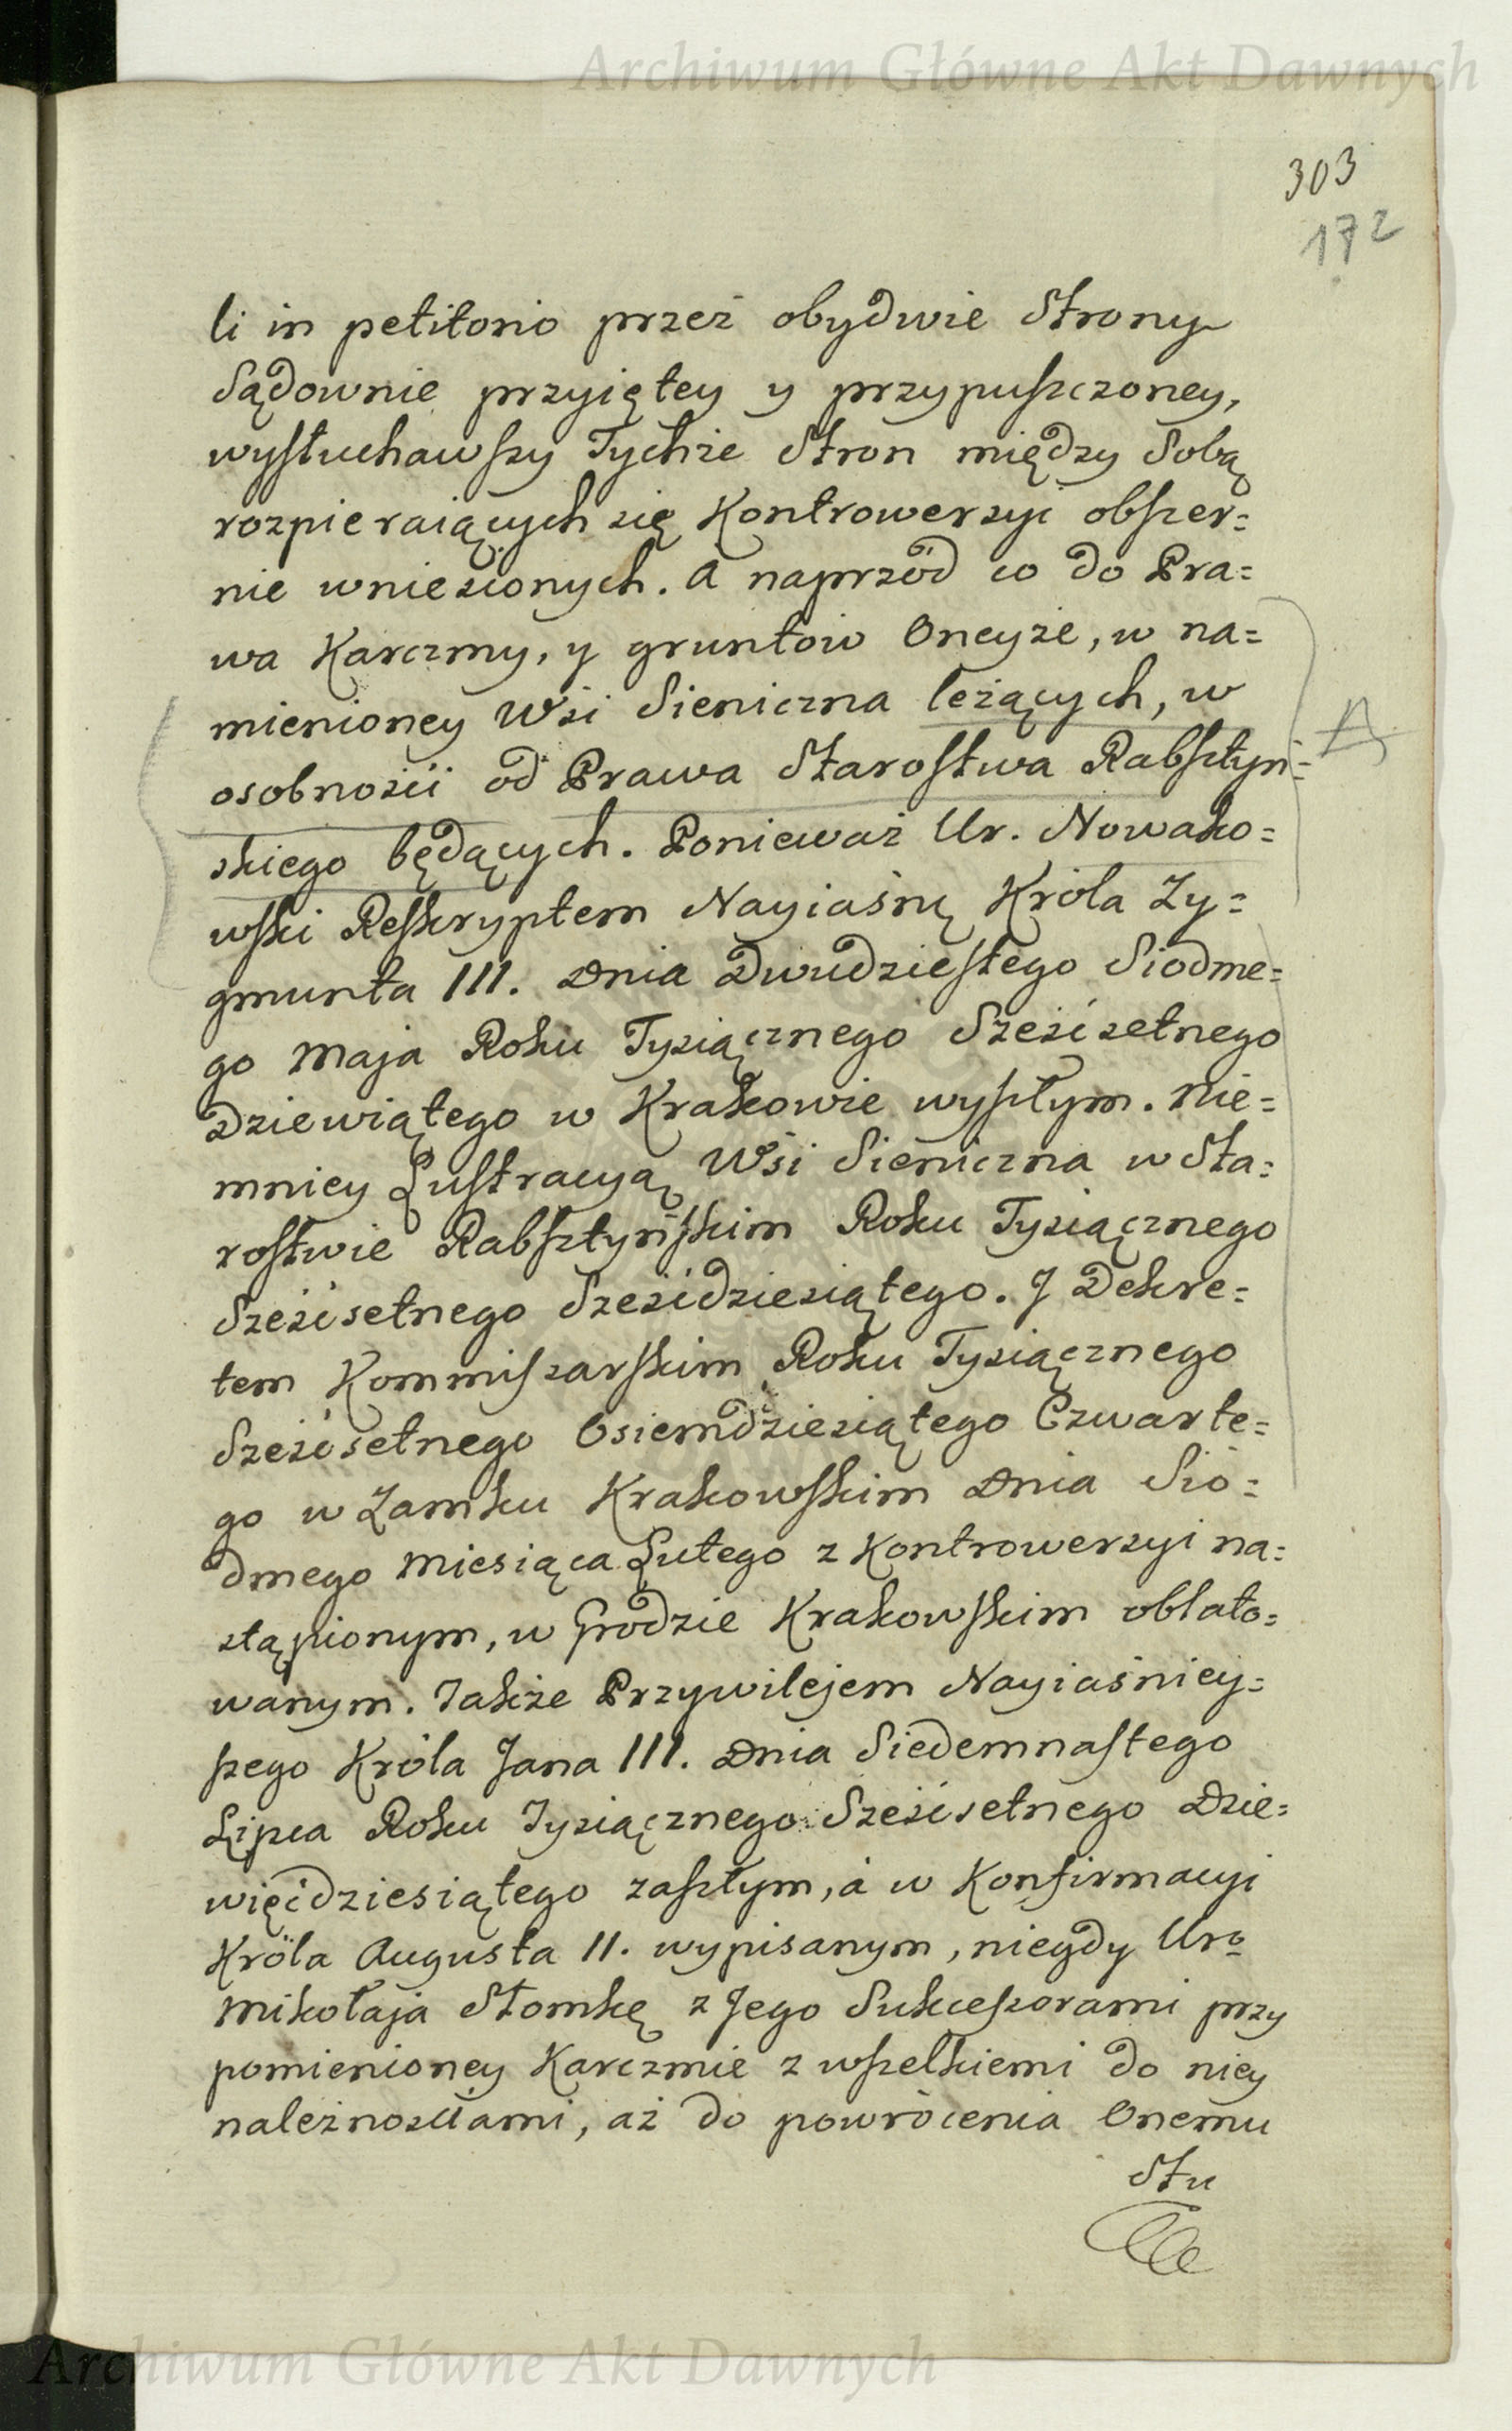 Archiwum Główne Akt Dawnych
303
172
li in petitorio przez obydwie Strony
Sądownie przyiętey y przypuszczoney,
wysłuchawszy Tychże Stron między Sobą
rozpieraiących się Kontrowersyi obszer=
nie wniesionych. A naprzód co do Pra=
wa Karczmy, y gruntów Oneyże, w na=
mienioney Wsi Sieniczna leżących, w
osobności od Prawa Starostwa Rabsztyn=
skiego będących. Ponieważ Ur. Nowako=
wski Reskryptem Nayiaśnę Króla Zy=
gmunta III. Dnia Dwudziestego Siodme=
go Maja Roku Tysiącznego Sześćsetnego
Dziewiątego w Krakowie wyszłym. Nie=
mniey Lustracyą Wsi Sieniczna w Sta=
rostwie Rabsztyńskim Roku Tysiącznego
Sześćsetnego Sześćdziesiątego. J Dekre=
tem Kommissarskim Roku Tysiącznego
Sześćsetnego Osiemdziesiątego Czwarte=
go w Zamku Krakowskim Dnia Sió=
dmego Miesiąca Lutego z Kontrowersyi na=
stąpionym, w Grodzie Krakowskim oblato=
wanym. Jakże Przywilejem Nayiaśniey=
szego Króla Jana III. Dnia Siedemnastego
Lipca Roku Tysiącznego Sześćsetnego Dzie=
więćdziesiątego zaszłym, á w Konfirmacyi
Króla Augusta II. wypisanym, niegdy Uro
Mikołaja Słomkę z Jego Sukcessorami przy
pomienioney Karczmie z wszelkiemi do niey
należnościami, aż do powrócenia Onemu
Stu
Archiwum Główne Akt Dawnych